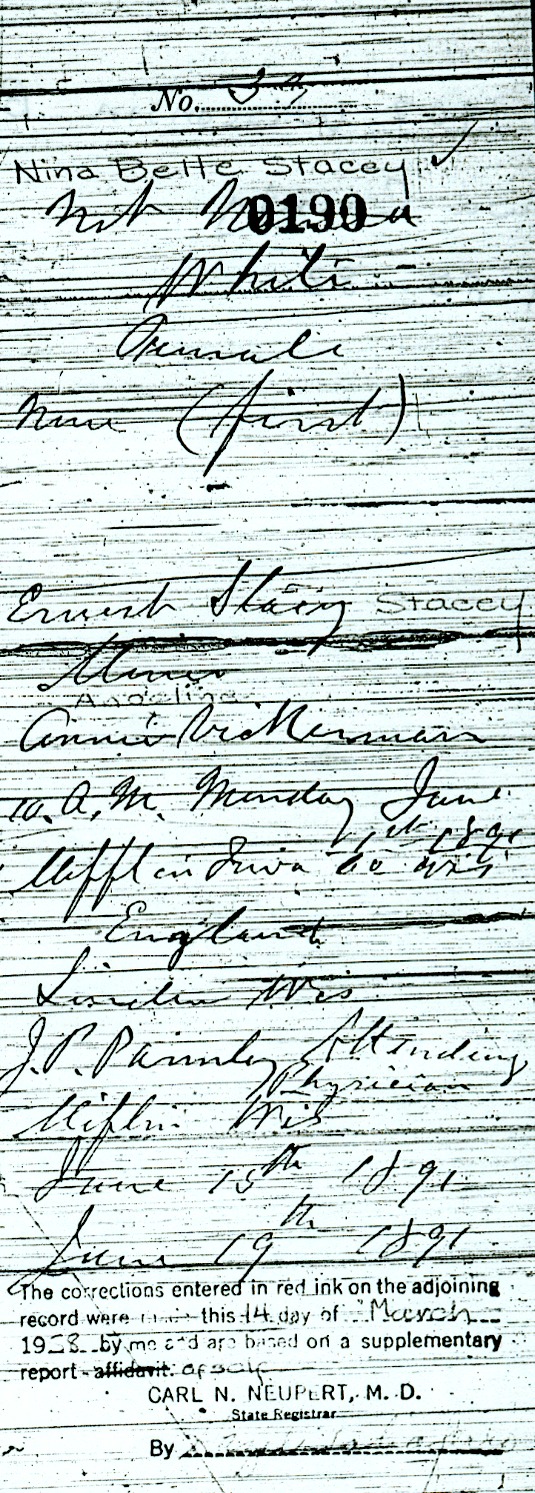 No. 39
Nina Belle Stacey ✓
Not Named
0190
White
Female
None (first)
Ernest Stacey Stacey
Miner
Angelina
Annie Vickerman
10. A. M. Monday June
1st 1891
Mifflin Iowa Co Wis
England
Linden Wis
J. P. Parmley Attending
Physician
Mifflin Wis
June 15th 1891
June 19th 1891
The corrections entered in red ink on the adjoining
record were this 14 day of March
19 by me and are based on a supplementary
report - affidavit. of self
CARL N. NEUPERT, M. D.
State Registrar
By